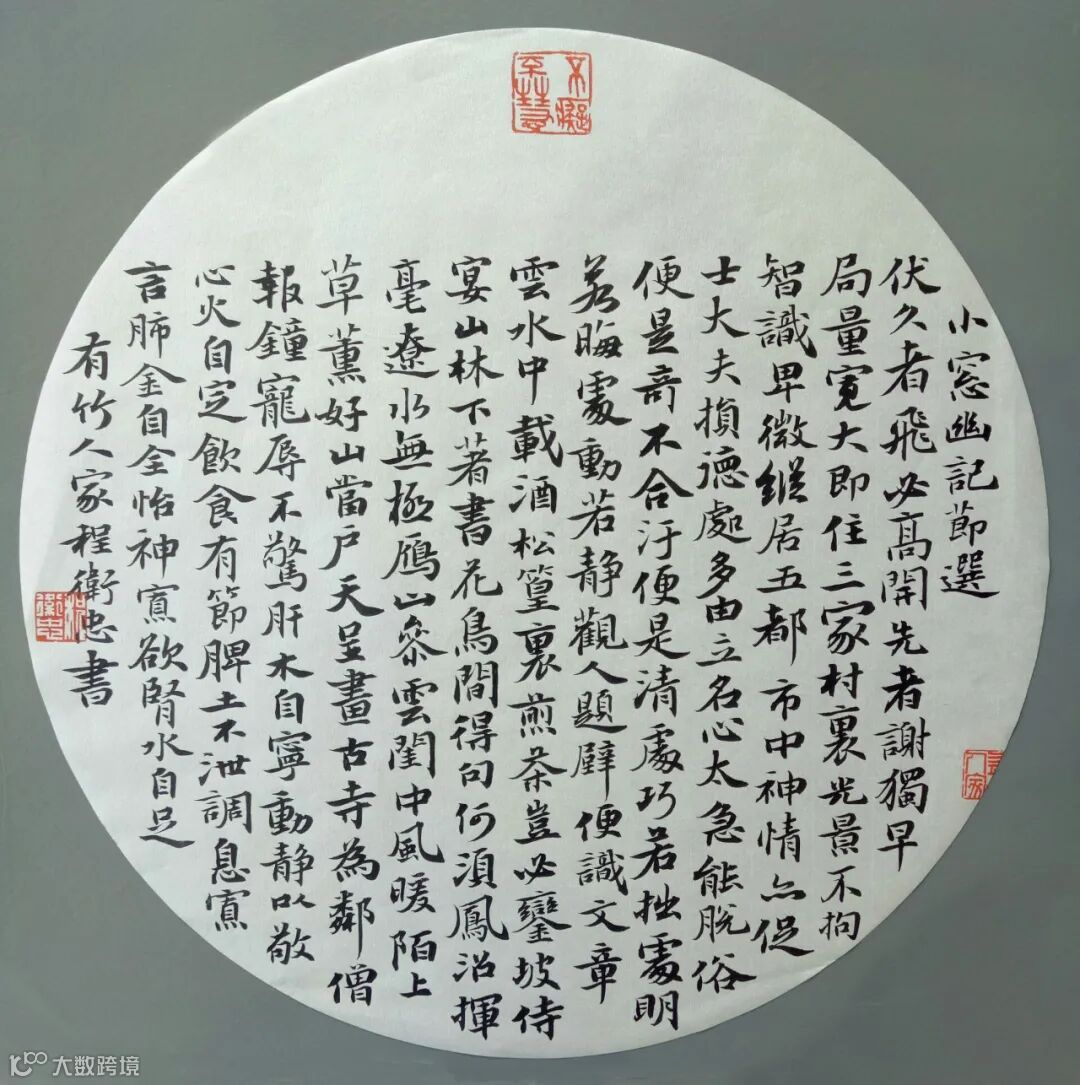 小窓幽記節選
伏久者飛必高開先者謝獨早
局量寬大即住三家村裏光景不拘
智識卑微縱居五都市中神情亦促
士大夫損德處多由立名心太急能脫俗
便是奇不合汙便是清處巧若拙處明
若晦處動若靜觀人題壁便識文章
雲水中載酒松篁裏煎茶豈必鑾坡侍
宴山林下著書花鳥間得句何須鳳沼揮
毫遼水無極雁山參雲閨中風暖陌上
草薰好山當戶天呈畫古寺為鄰僧
報鐘寵辱不驚肝木自寧動靜以敬
心火自定飲食有節脾土不泄調息寡
言肺金自全怡神寡欲腎水自足
有竹人家程衛忠書
大数跨境